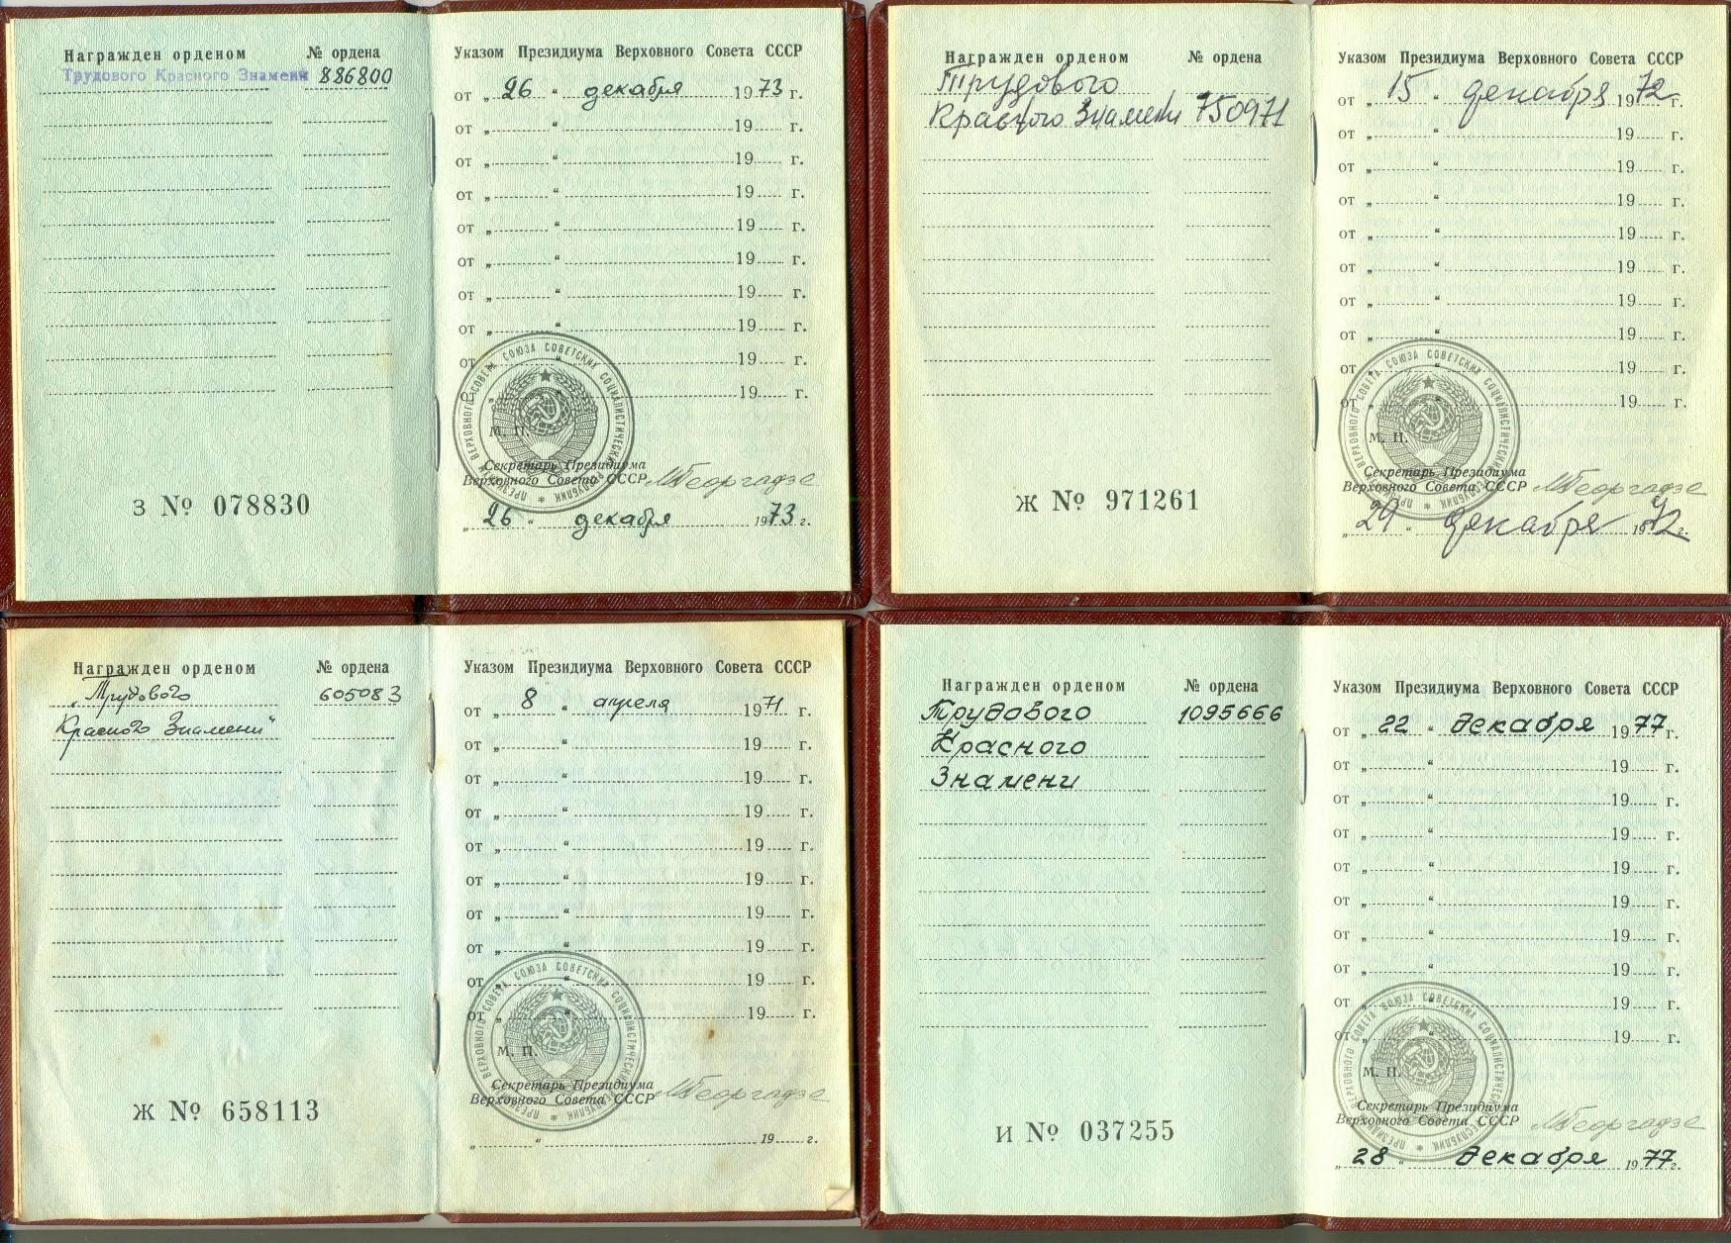 Награжден орденом № ордена
Трудового Красного Знамени 886800
З № 078830
Указом Президиума Верховного Совета СССР
от „ 26 “ декабря 1973 г.
от „ “ 19 г.
от „ “ 19 г.
от „ “ 19 г.
от „ “ 19 г.
от „ “ 19 г.
от „ “ 19 г.
от „ “ 19 г.
от „ “ 19 г.
от „ “ 19 г.
ПРЕЗИДИУМ ВЕРХОВНОГО СОВЕТА СОЮЗА СОВЕТСКИХ СОЦИАЛИСТИЧЕСКИХ РЕСПУБЛИК
М. П.
Секретарь Президиума
Верховного Совета СССР МГеоргадзе
„ 26 “ декабря 1973 г.
Награжден орденом № ордена
Трудового
Красного Знамени 750971
Ж № 971261
Указом Президиума Верховного Совета СССР
от „ 15 “ декабря 1972 г.
от „ “ 19 г.
от „ “ 19 г.
от „ “ 19 г.
от „ “ 19 г.
от „ “ 19 г.
от „ “ 19 г.
от „ “ 19 г.
от „ “ 19 г.
от „ “ 19 г.
ПРЕЗИДИУМ ВЕРХОВНОГО СОВЕТА СОЮЗА СОВЕТСКИХ СОЦИАЛИСТИЧЕСКИХ РЕСПУБЛИК
М. П.
Секретарь Президиума
Верховного Совета СССР МГеоргадзе
„ 29 “ декабря 1972 г.
Награжден орденом № ордена
„Трудового 605083
Красного Знамени"
Ж № 658113
Указом Президиума Верховного Совета СССР
от „ 8 “ апреля 1971 г.
от „ “ 19 г.
от „ “ 19 г.
от „ “ 19 г.
от „ “ 19 г.
от „ “ 19 г.
от „ “ 19 г.
от „ “ 19 г.
от „ “ 19 г.
от „ “ 19 г.
ПРЕЗИДИУМ ВЕРХОВНОГО СОВЕТА СОЮЗА СОВЕТСКИХ СОЦИАЛИСТИЧЕСКИХ РЕСПУБЛИК
М. П.
Секретарь Президиума
Верховного Совета СССР МГеоргадзе
„ “ 19 г.
Награжден орденом № ордена
Трудового 1095666
Красного
Знамени
И № 037255
Указом Президиума Верховного Совета СССР
от „ 22 “ декабря 1977 г.
от „ “ 19 г.
от „ “ 19 г.
от „ “ 19 г.
от „ “ 19 г.
от „ “ 19 г.
от „ “ 19 г.
от „ “ 19 г.
от „ “ 19 г.
от „ “ 19 г.
ПРЕЗИДИУМ ВЕРХОВНОГО СОВЕТА СОЮЗА СОВЕТСКИХ СОЦИАЛИСТИЧЕСКИХ РЕСПУБЛИК
М. П.
Секретарь Президиума
Верховного Совета СССР МГеоргадзе
„ 28 “ декабря 1977 г.